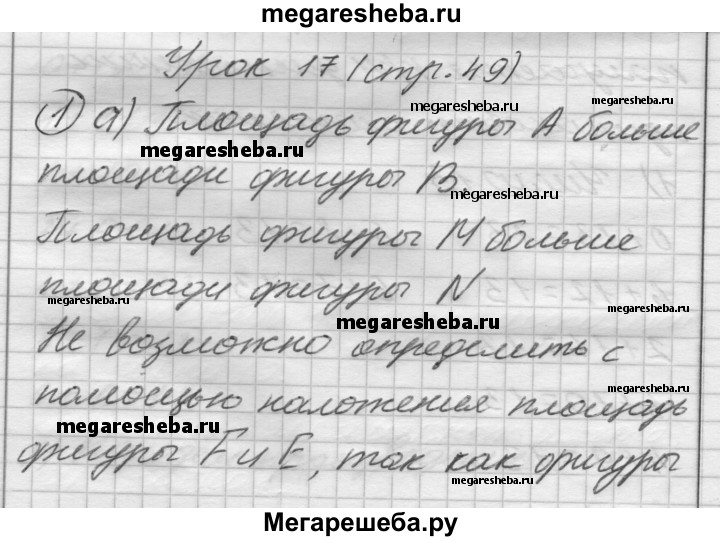 megaresheba.ru
Урок 17 (стр. 49)
megaresheba.ru
megaresheba.ru
① а) Площадь фигуры А больше
megaresheba.ru
площади фигуры В.
megaresheba.ru
Площадь фигуры М больше
площади фигуры N
megaresheba.ru
megaresheba.ru
Не возможно определить с
megaresheba.ru
помощью наложения площадь
megaresheba.ru
фигуры F и E, так как фигуры
megaresheba.ru
Мегарешеба.ру